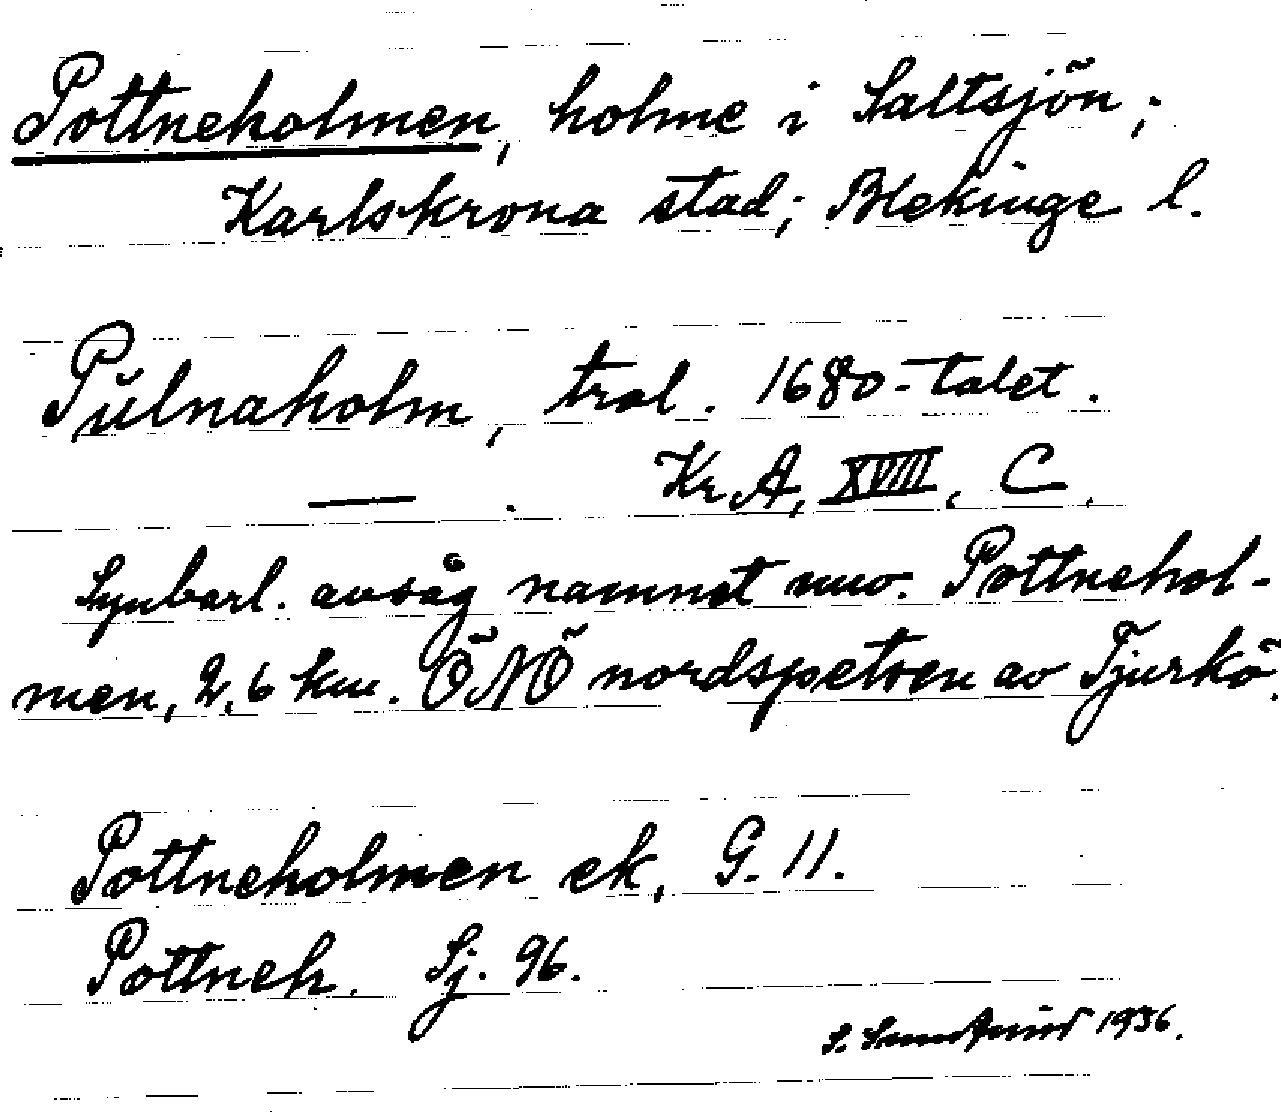 Pottneholmen, holme i Saltsjön;
Karlskrona stad; Blekinge l.
Pŭlnaholm, trol. 1680-talet.
— . Kr. A, XVIII, C.
Synbarl. avsåg namnet nuv. Pottnehol-
men, 2,6 km. ÖNÖ nordspetsen av Tjurkö.
Pottneholmen ek, G. 11.
Pottneh. Sj. 96.
S. 1936.